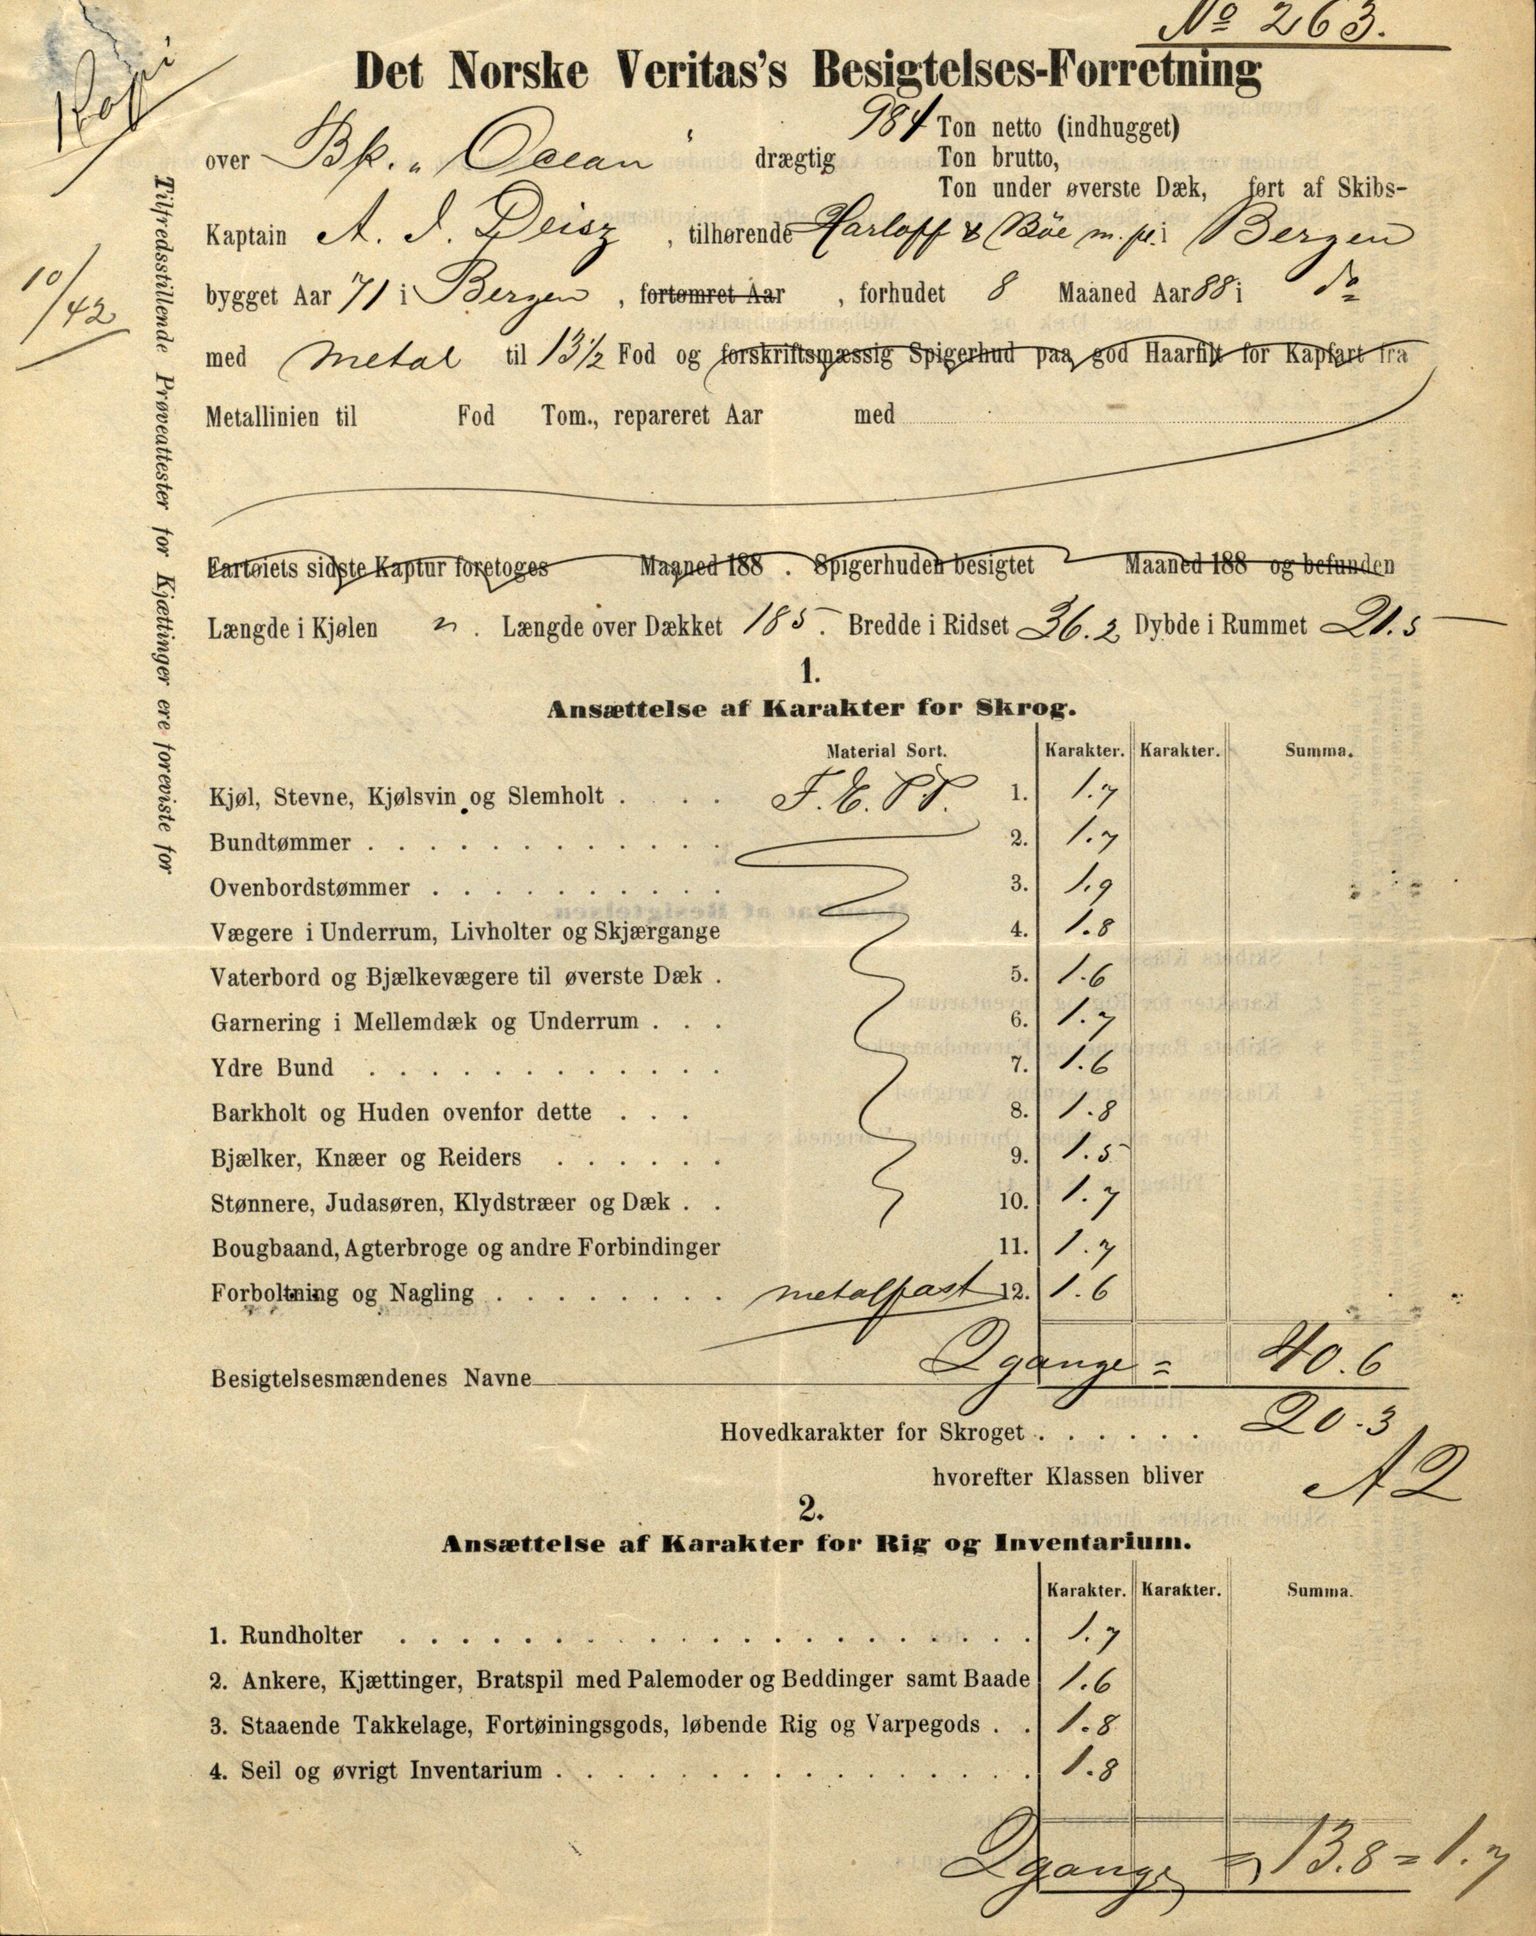 No 263.
Kopi
Det Norske Veritas's Besigtelses-Forretning
984 Ton netto (indhugget)
over Bk. „Ocean" drægtig Ton brutto,
Ton under øverste Dæk, ført af Skibs-
Kaptain A. J. Deisz, tilhørende Harloff & Böe m. fl. i Bergen
bygget Aar 71 i Bergen, fortømret Aar , forhudet 8 Maaned Aar 88 i do
10/42
med Metal til 13½ Fod og forskriftsmæssig Spigerhud paa god Haarfilt for Kapfart fra
Metallinien til Fod Tom., repareret Aar med
Fartøiets sidste Kaptur foretoges Maaned 188 . Spigerhuden besigtet Maaned 188 og befunden
Længde i Kjølen " . Længde over Dækket 185. Bredde i Ridset 36.2 Dybde i Rummet 21.5
Tilfredsstillende Prøveattester for Kjættinger ere foreviste for
1.
Ansættelse af Karakter for Skrog.
Material Sort. Karakter. Karakter. Summa.
Kjøl, Stevne, Kjølsvin og Slemholt . . . . F. E. P.P. 1. 1.7
Bundtømmer . . . . . . . . . . . . . 2. 1.7
Ovenbordstømmer . . . . . . . . . . 3. 1.9
Vægere i Underrum, Livholter og Skjærgange 4. 1.8
Vaterbord og Bjælkevægere til øverste Dæk . 5. 1.6
Garnering i Mellemdæk og Underrum . . . 6. 1.7
Ydre Bund . . . . . . . . . . . . . 7. 1.6
Barkholt og Huden ovenfor dette . . . 8. 1.8
Bjælker, Knæer og Reiders . . . . . . 9. 1.5
Stønnere, Judasøren, Klydstræer og Dæk . . 10. 1.7
Bougbaand, Agterbroge og andre Forbindinger 11. 1.7
Forboltning og Nagling . . . . . . . . metalfast 12. 1.6
Besigtelsesmændenes Navne 2 gange = 40.6
Hovedkarakter for Skroget . . . . . . 20.3
hvorefter Klassen bliver A 2
2.
Ansættelse af Karakter for Rig og Inventarium.
Karakter. Karakter. Summa.
1. Rundholter . . . . . . . . . . . . . . . . . . . . 1.7
2. Ankere, Kjættinger, Bratspil med Palemoder og Beddinger samt Baade 1.6
3. Staaende Takkelage, Fortøiningsgods, løbende Rig og Varpegods . . 1.8
4. Seil og øvrigt Inventarium . . . . . . . . . . . . . . . . 1.8
2 gange = 13.8 = 1.7